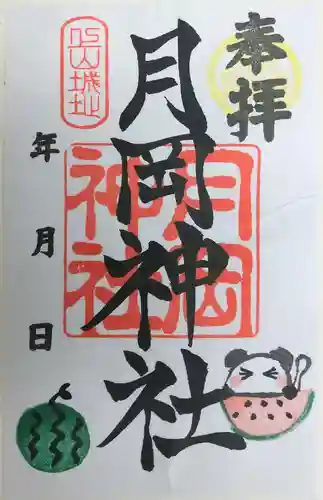 奉拝
月岡神社
月岡
神社
山城址
年月日